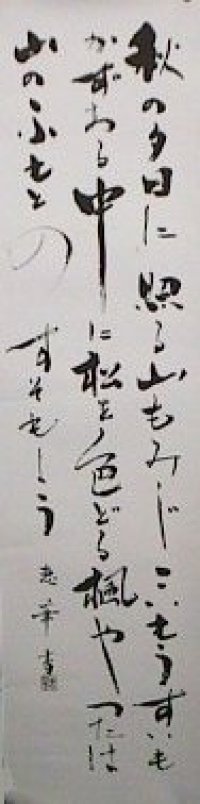 秋の夕日に照る山もみじこいもうすいも
かずある中に松を色どる楓やつたは
山のふもとのすそもよう